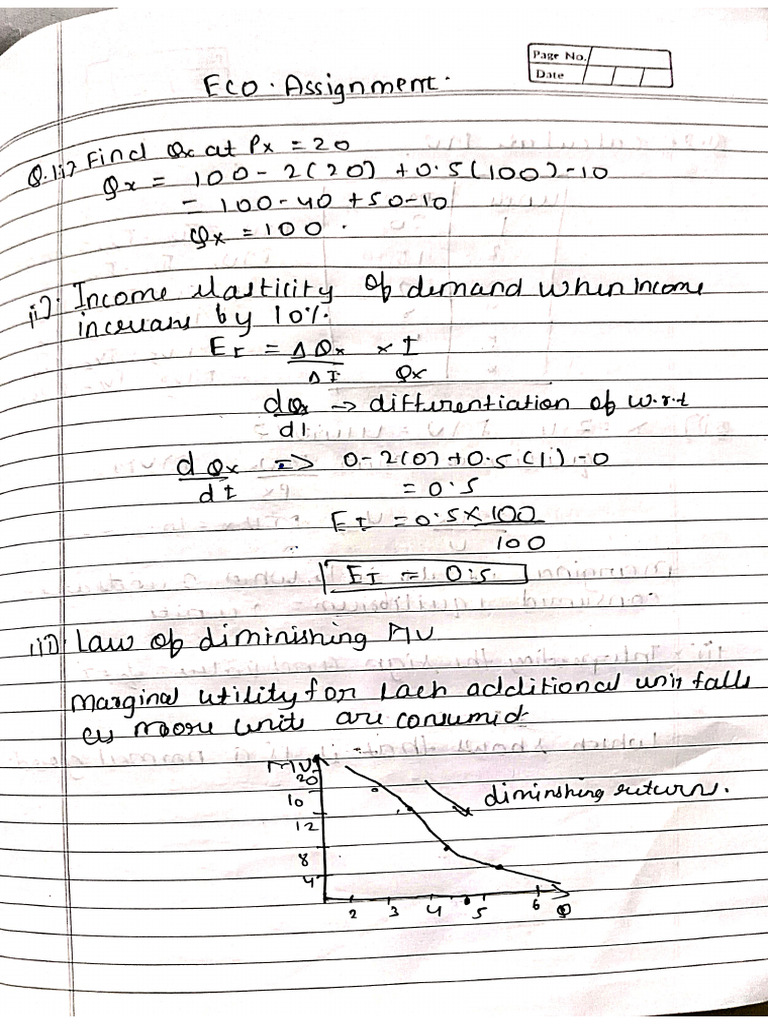 Page No.
Date
ECO. Assignment.
Q.1i) Find Qx at Px = 20
Qx = 100 - 2(20) + 0.5(100) - 10
= 100 - 40 + 50 - 10
Qx = 100.
ii) Income elasticity of demand when income
increases by 10%.
EI = ΔQx × I
ΔI Qx
dQx → differentiation of w.r.t
dI
dQx => 0 - 2(0) + 0.5(1) - 0
dI = 0.5
EI = 0.5 × 100
100
EI = 0.5
iii) Law of diminishing MU
Marginal utility for each additional unit falls
as moore units are consumed.
MU
20
10
12
8
4
diminshing return.
2 3 4 5 6 Q